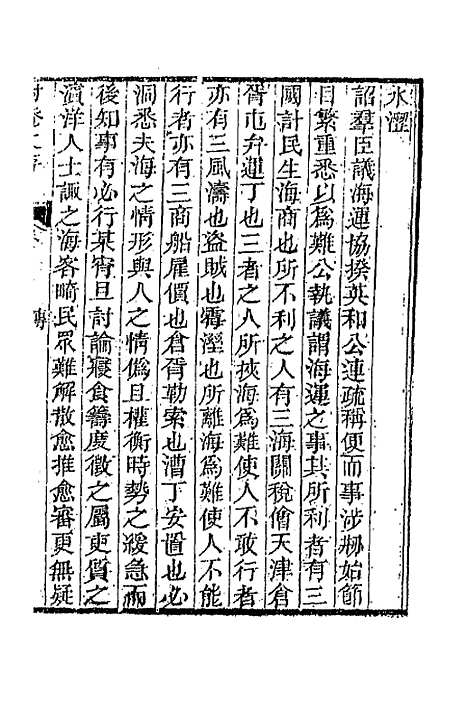 水澀
詔羣臣議海運協揆英和公連疏稱便而事涉刱始節
目繁重悉以爲難公執議謂海運之事其所利者有三
國計民生海商也所不利之人有三海關稅儈天津倉
胥屯弁運丁也三者之人所挾海爲難使人不敢行者
亦有三風濤也盜賊也霉溼也所離海爲難使人不能
行者亦有三商船雇價也倉胥勒索也漕丁安置也必
洞悉夫海之情形與人之情僞且權衡時勢之緩急而
後知事有必行某宵旦討論寢食籌度徵之屬吏質之
濱洋人士諏之海客畸民眾難解散愈推愈審更無疑
傳